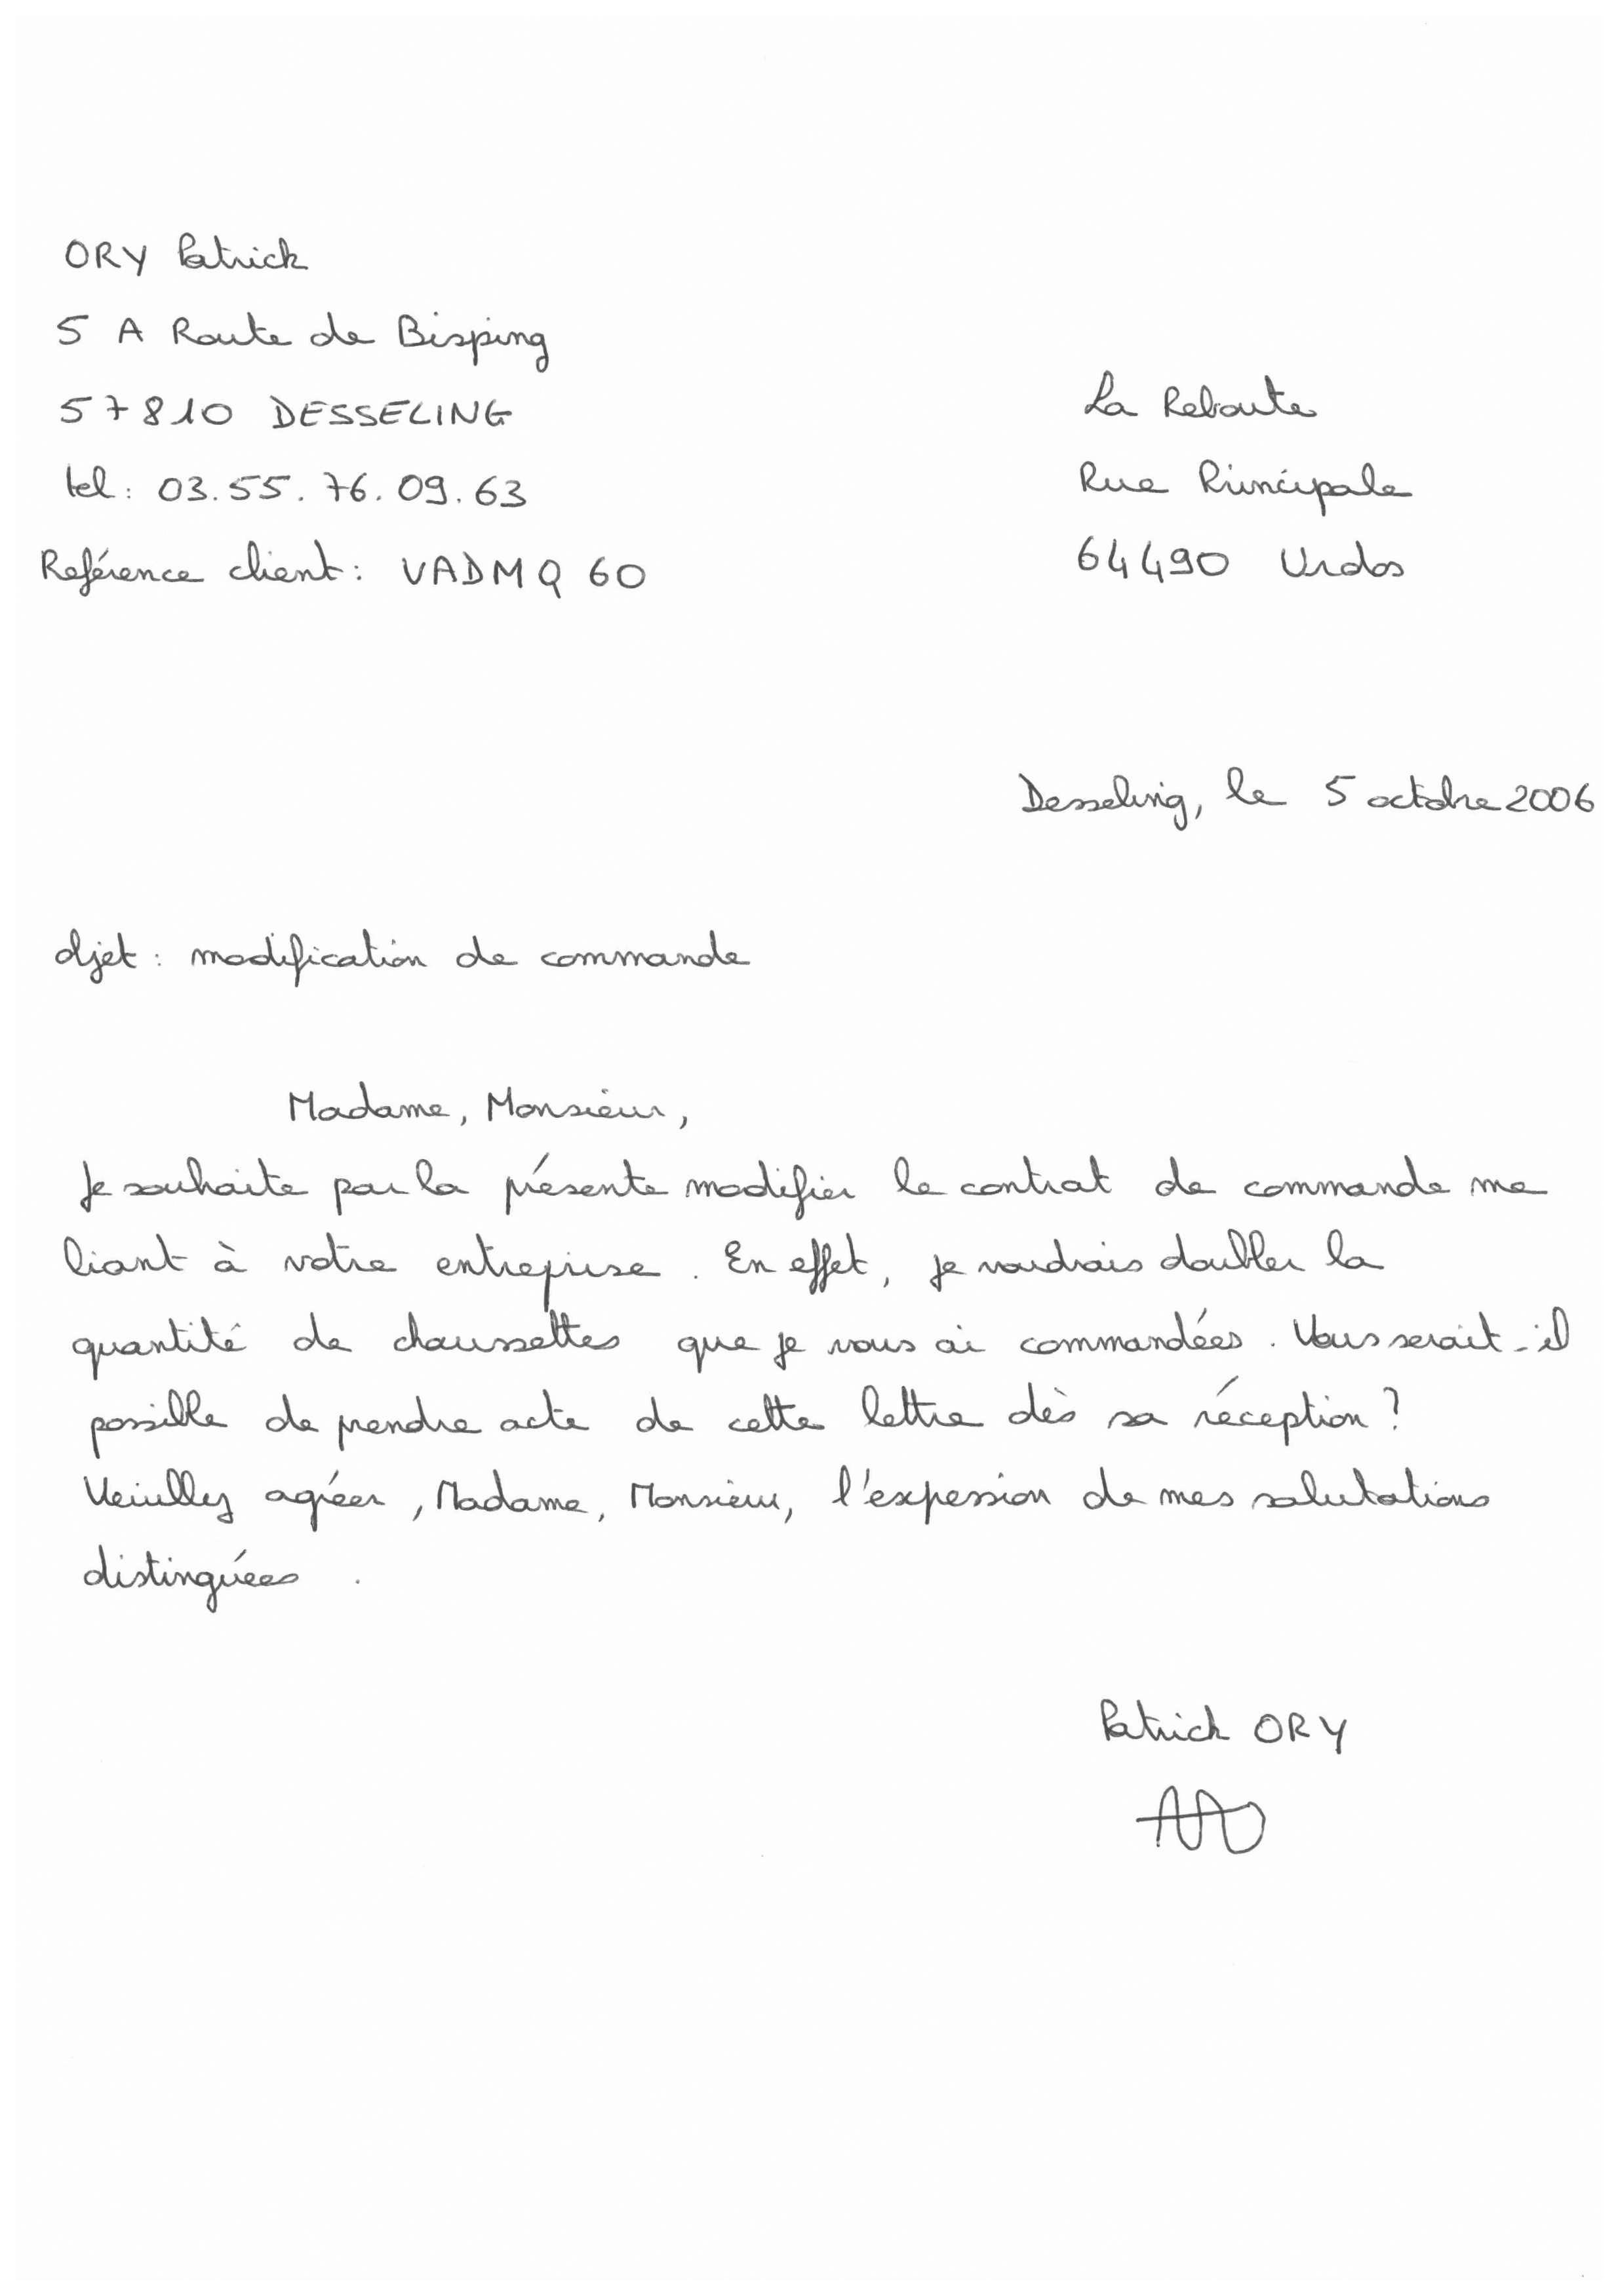 ORY Patrick
5 A Route de Bisping
57810 DESSELING
tel : 03.55.76.09.63
Reférence client : VADMQ 60
La Reboute
Rue Principale
64490 Urdos
Desseling, le 5 octobre 2006
objet : modification de commande
Madame, Monsieur,
Je souhaite par la présente modifier le contrat de commande me
liant à votre entreprise. En effet, je voudrais doubler la
quantité de chaussettes que je vous ai commandées. Vous serait-il
possible de prendre acte de cette lettre dès sa réception ?
Veuillez agréer, Madame, Monsieur, l'expession de mes salutations
distinguées.
Patrick ORY